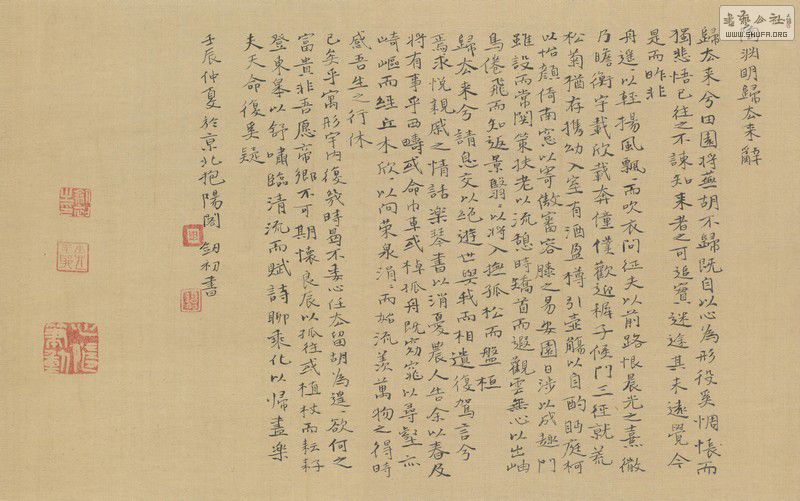 淵明歸去来辭
歸去来兮田園将蕪胡不歸既自以心為形役奚惆悵而
獨悲悟已往之不諫知来者之可追實迷途其未遠覺今
是而昨非
舟遙以輕揚風飄〻而吹衣問征夫以前路恨晨光之熹微
乃瞻衡宇載欣載奔僮僕歡迎稚子候門三徑就荒
松菊猶存携幼入室有酒盈樽引壺觴以自酌眄庭柯
以怡顔倚南窓以寄傲審容膝之易安園日涉以成趣門
雖設而常関策扶老以流憩時矯首而遐觀雲無心以出岫
鳥倦飛而知返景翳〻以将入撫孤松而盤桓
歸去来兮請息交以絕遊世與我而相遺復駕言兮
焉求悅親戚之情話樂琴書以消憂農人告余以春及
将有事乎西疇或命巾車或棹孤舟既窈窕以尋壑亦
崎嶇而經丘木欣〻以向荣泉涓〻而始流羡萬物之得時
感吾生之行休
已矣乎寓形宇内復幾時曷不委心任去留胡為遑〻欲何之
富貴非吾愿帝鄉不可期懷良辰以孤往或植杖而耘耔
登東皋以舒嘯臨清流而賦詩聊乘化以歸盡樂
夫天命復奚疑
壬辰仲夏於京北抱陽閣 初書
WWW.SHUFA.ORG